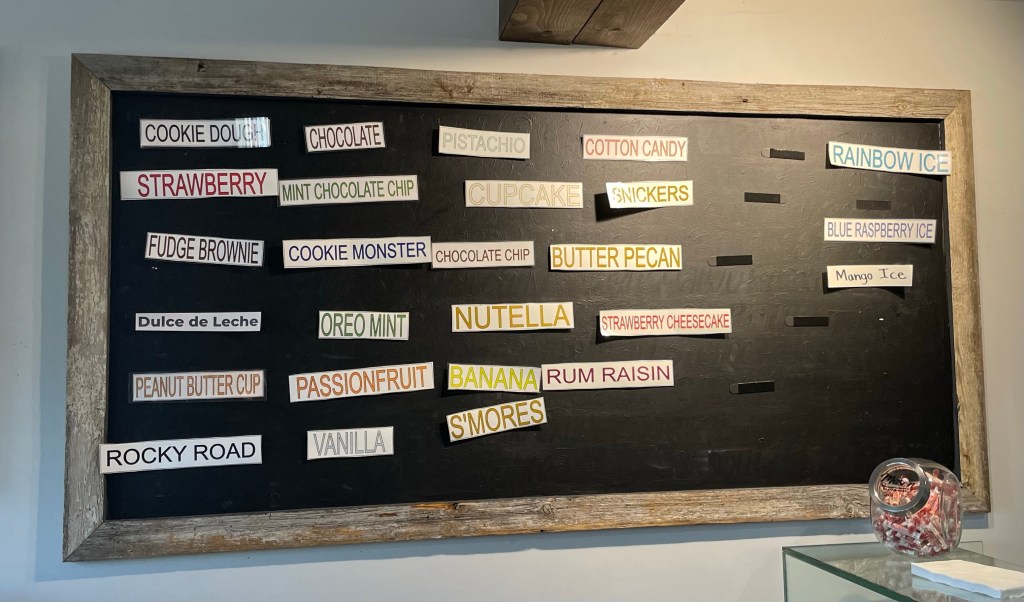 COOKIE DOUGH
CHOCOLATE
PISTACHIO
COTTON CANDY
RAINBOW ICE
STRAWBERRY
MINT CHOCOLATE CHIP
CUPCAKE
SNICKERS
BLUE RASPBERRY ICE
FUDGE BROWNIE
COOKIE MONSTER
CHOCOLATE CHIP
BUTTER PECAN
Mango Ice
Dulce de Leche
OREO MINT
NUTELLA
STRAWBERRY CHEESECAKE
PEANUT BUTTER CUP
PASSIONFRUIT
BANANA
RUM RAISIN
S'MORES
ROCKY ROAD
VANILLA